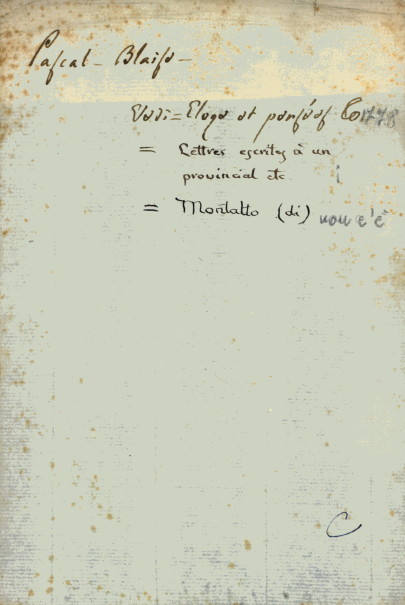 Pascal - Blaise -
Vedi = Eloge et pensées & 1778
= Lettres escrites à un
provincial etc. i
= Montalto (di) non c'è
C